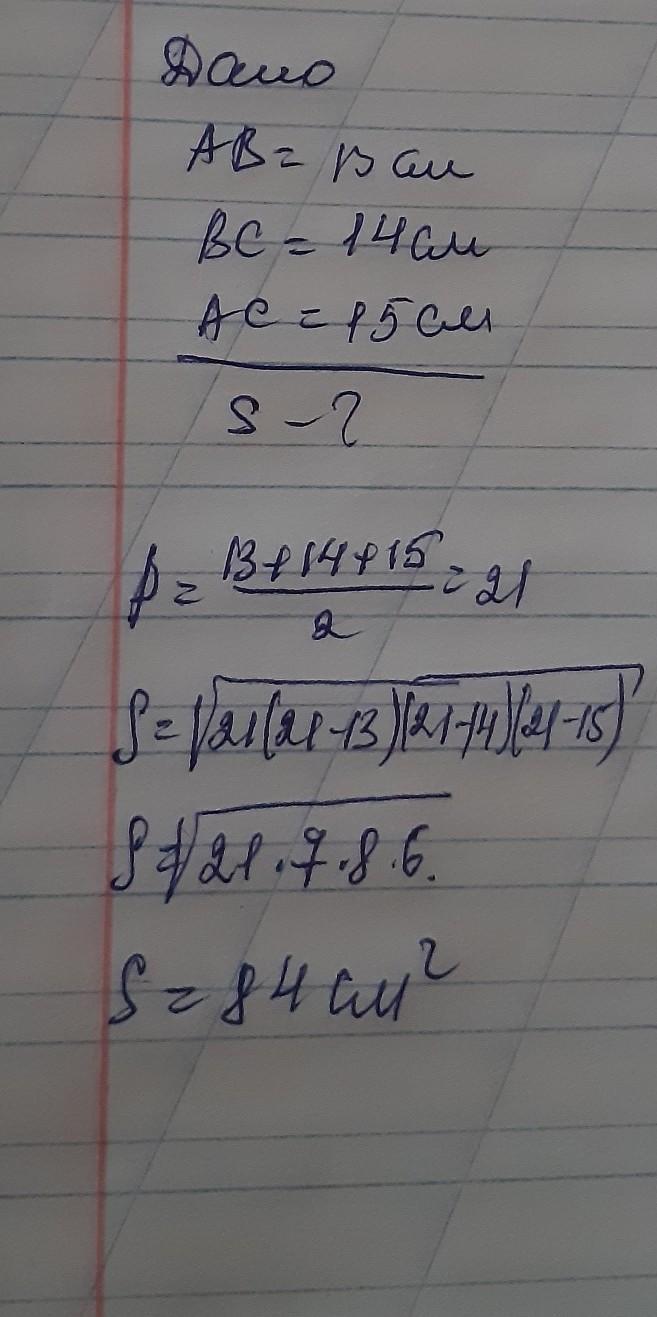 Дано
AB = 13 см
BC = 14 см
AC = 15 см
S - ?
p = (13+14+15)/2 = 21
S = √21(21-13)(21-14)(21-15)
S = √21·7·8·6.
S = 84 см²